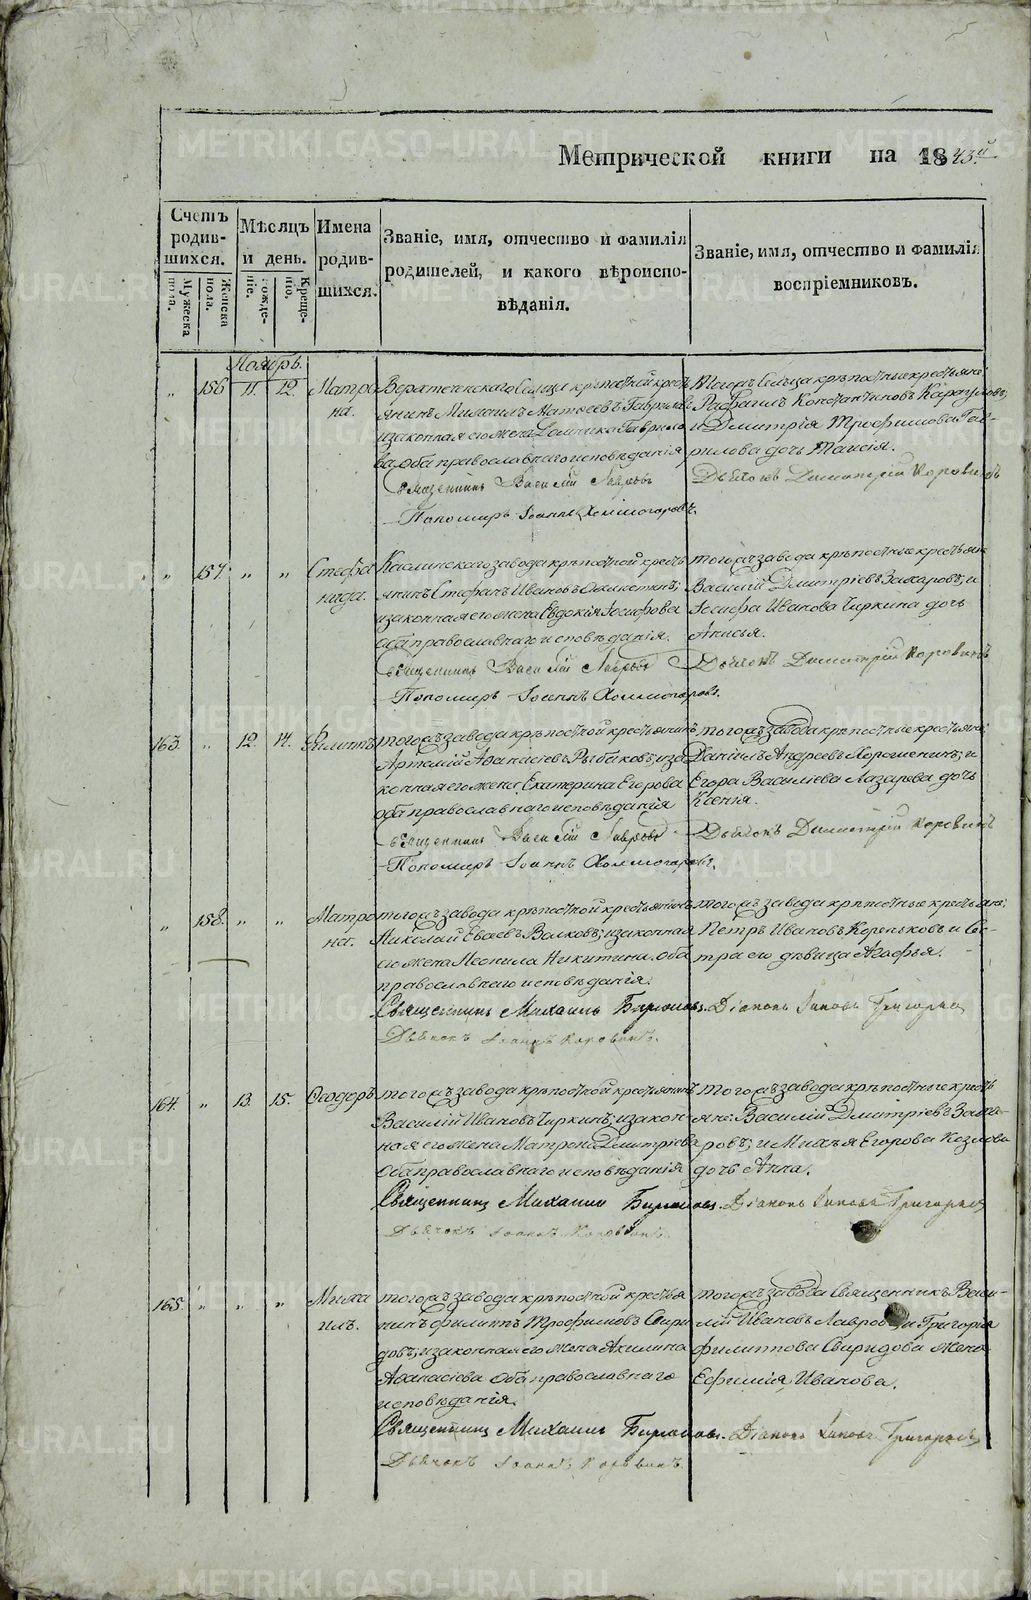 Метрической книги на 1843й
Счетъ родив-шихся.
Мѣсяцъ и день.
Имена родив-шихся.
Званіе, имя, отчество и фамилія родителей, и какого вѣроиспо-вѣданія.
Званіе, имя, отчество и фамилія воспріемниковъ.
Мужеска пола.
Женска пола.
рожде-ніе.
Креще-ніе.
Ноябрь.
„ 156 11. 12. Матро-на.
крѣпостной крест-
янинъ Михаилъ Матѳеевъ Гаврило
и законная его жена Гаврило
ва, оба православнаго исповѣданія
Священникъ Василій Лавровъ
Пономарь Іоаннъ Холмогоровъ.
Тогожъ Сельца крѣпостные крестьяне:
Рафаилъ Константиновъ Карауловъ;
и Димитрія Трофимова Гав-
рилова дочь Таисія.
Дьячокъ Димитрій Коровинъ
„ 157. „ „ Стефа-нида.
Каслинскаго завода крѣпостной кресть-
янинъ Стефанъ Ивановъ
и законная его жена Евдокія Іосифова
оба православнаго исповѣданія.
Священникъ Василій Лавровъ
Пономарь Іоаннъ Холмогоровъ.
тогожъ завода крѣпостные крестьяне
Василій Дмитріевъ Захаровъ; и
Іосифа Иванова Чиркина дочь
Анисья.
Дьячокъ Димитрій Коровинъ
163. „ 12. 14. Филиппъ
тогожъ завода крѣпостной крестьянинъ
Артемій Аѳанасіевъ Рыбаковъ; и за
конная его жена Екатерина Егорова
оба православнаго исповѣданія
Священникъ Василій Лавровъ
Пономарь Іоаннъ Холмогоровъ.
тогожъ завода крѣпостные крестьяне:
Даніилъ Андреевъ и
Егора Васильева Лазарева дочь
Ксенія.
Дьячокъ Димитрій Коровинъ
„ 158. „ „ Матро-на.
тогожъ завода крѣпостной крестьянинъ
Николай Волковъ; и законная
его жена Неонила Никитина. оба
православнаго исповѣданія.
Священникъ Михаилъ Бирюковъ.
Дьячокъ Іоаннъ Коровинъ.
тогожъ завода крѣпостные крестьяне:
Петръ Ивановъ и Се-
тра его дѣвица Агафья.
Діаконъ
164. „ 13. 15. Ѳеодоръ
тогожъ завода крѣпостной крестьянинъ
Василій Ивановъ Чиркинъ; и закон-
ная его жена Матрона Дмитріева
оба православнаго исповѣданія
Священникъ Михаилъ Бирюковъ.
Дьячокъ Іоаннъ Коровинъ.
тогожъ завода крѣпостные кресть
яне: Василій Дмитріевъ Заха-
ровъ; и Егорова Козлова
дочь Анна.
Діаконъ
165. „ „ „ Миха-илъ.
тогожъ завода крѣпостной крестья
нинъ Филиппъ Трофимовъ Свири
довъ; и законная его жена Акилина
Аѳанасіева оба православнаго
исповѣданія.
Священникъ Михаилъ Бирюковъ.
Дьячокъ Іоаннъ Коровинъ.
тогожъ завода Священникъ Васи-
лій Ивановъ Лавровъ, и Григорія
Филиппова Свиридова жена
Ефимія Иванова.
Діаконъ
METRIKI.GASO-URAL.RU